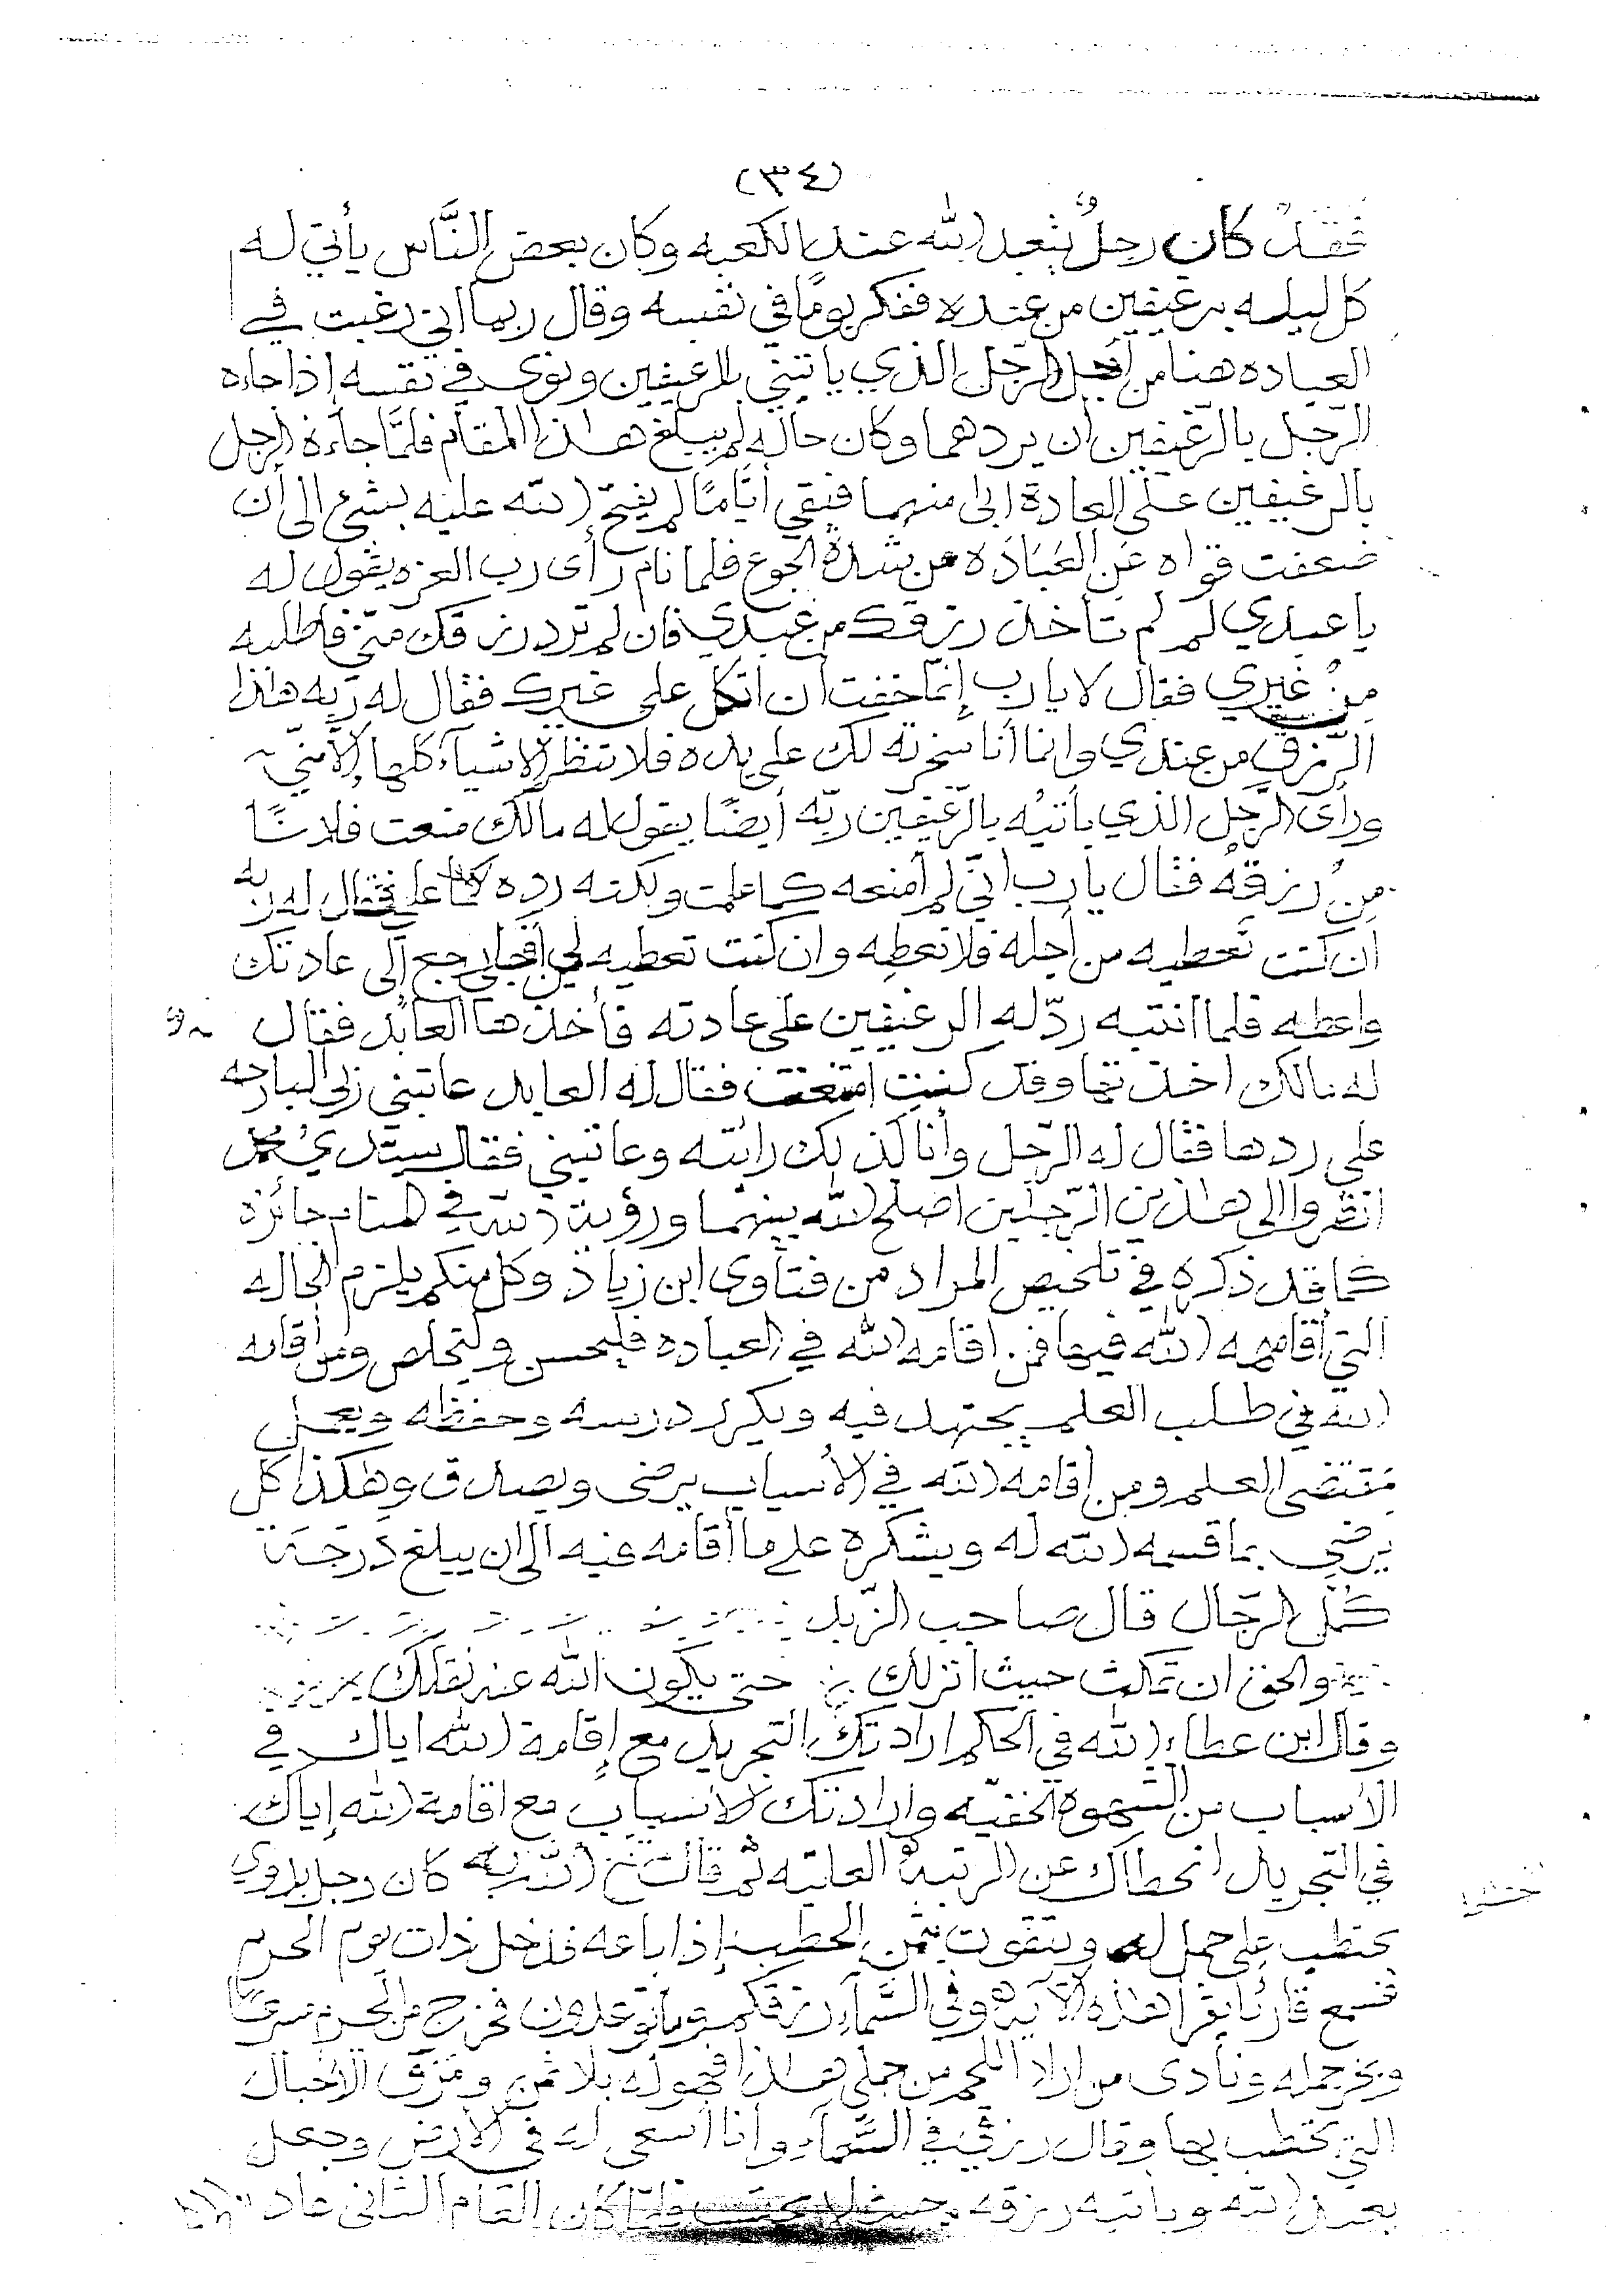 (٣٤)
فقد كان رجل يتعبد الله عند الكعبه وكان بعض النَّاس يأتي له
كل ليله برغيفين من عنده ففكر يومًا في نفسه وقال ربما اني رغبت في
العباده هنا من أجل الرّجل الذي ياتيني بالرغيفين ونوى في نفسه إذا جاءه
الرّجل بالرّغيفين أن يردهما وكان حاله لم يبلغ هذا المقام فلمَّا جاءه الرجل
بالرغيفين على العادة ابى منهما فبقي أيّامًا لم يفتح الله عليه بشيء الى أن
ضعفت قواه عن العبَادَه من شدة الجوع فلما نام رأى رب العزه يقول له
يا عبدي لم لم تأخذ رزقك من عبدي فان لم ترد رزقك منّي فاطلبه
من غيري فقال لا يا رب إنّما خفت أن اتكل على غيرك فقال له ربه هذا
الرّزق من عندي وانما أنا سخرته لك على يده فلا تنظر الاشيآء كلها إلا منّي
ورأى الرّجل الذي يأتيه بالرّغيفين ربّه أيضًا يقول له مالك منعت فلانًا
من رزقه فقال يا رب انّي لم أمنعه كما علمت ولكنه رده علي فقال له ربه
ان كنت تعطيه من أجله فلا تعطه وان كنت تعطيه لي من أجلي ارجع إلى عادتك
واعطه فلما انتبه ردّ له الرغيفين على عادته فأخذها العابد فقال
له مالك اخذتها وقد كنت امتنعت فقال له العابد عاتبني ربي البارحه
على ردها فقال له الرّجل وأنا كذلك رأيته وعاتبني فقال سيّدي محمد
انظروا الى هذين الرّجلين اصلح الله بينهما ورؤية الله في المنام جائزه
كما قد ذكره في تلخيص المراد من فتاوى ابن زياد وكل منكم يلزم الحاله
التي أقامه الله فيها فمن اقامه الله في العباده فليحسن وليخلص ومن أقامه
الله في طلب العلم يجتهد فيه ويكرر درسه وحفظه ويعمل
بمقتضى العلم ومن اقامه الله في الأسباب يرضى ويصدق وهكذا كل
يرضى بما قسمه الله له ويشكره على ما أقامه فيه الى ان يبلغ درجة
كمّل الرجّال قال صاحب الزّبد
والحق ان تمكث حيث انزلك حتى يكون الله عنه نقلك
وقال ابن عطاء الله في الحكم ارادتك التجريد مع إقامة الله اياك في
الأسباب من الشهوة الخفيّه وارادتك الأسباب مع اقامة الله إياك
في التجريد انحطاك عن الرتبة العليّه ثم قال كان رجل بدوي
يحتطب على جمل له ويتقوت بثمن الحطب إذا باعه فدخل ذات يوم الحرم
فسمع قارئًا يقرأ هذه الآيه وفي السَّمآء رزقكم وما توعدون فخرج من الحرم مسرعًا
ونحر جمله ونادى من اراد اللحم من جملي هذا فهو له بلا ثمن ومزّق الأحبال
التي يحتطب بها وقال رزقي في السَّمآء وأنا أسعى له في الأرض وجعل
يعبد الله ويأتيه رزقه من حيث لا يحتسب فلمّا كان العام الثاني عاد